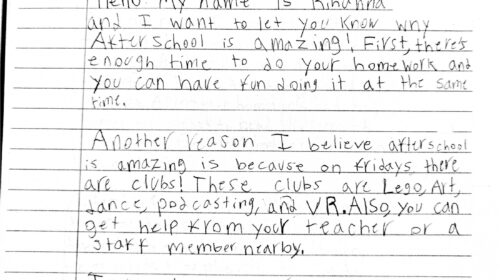 Hello My name is Rihanna
and I want to let you know why
Afterschool is amazing! First, there's
enough time to do your homework and
you can have fun doing it at the same
time.
Another reason I believe afterschool
is amazing is because on fridays there
are clubs! These clubs are Lego, Art,
dance, podcasting, and VR. Also, you can
get help from your teacher or a
staff member nearby.